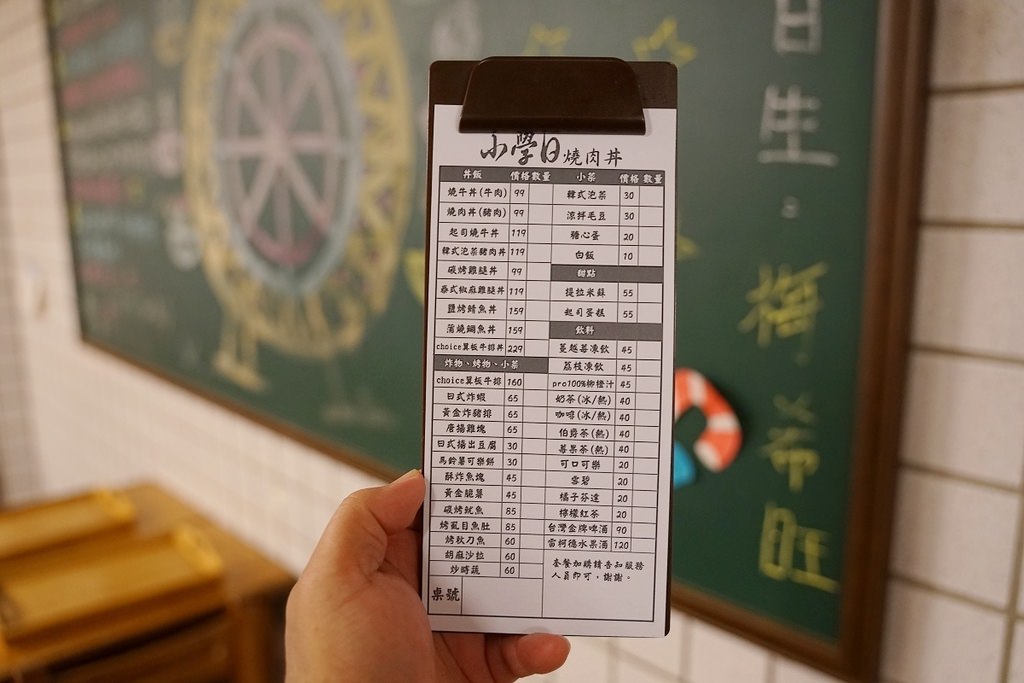 小學日燒肉丼
丼飯 價格 數量
燒牛丼(牛肉) 99
燒肉丼(豬肉) 99
起司燒牛丼 119
韓式泡菜豬肉丼 119
碳烤雞腿丼 99
泰式椒麻雞腿丼 119
鹽烤鯖魚丼 159
蒲燒鯛魚丼 159
choice翼板牛排丼 229
炸物、烤物、小菜
choice翼板牛排 160
日式炸蝦 65
黃金炸豬排 65
唐揚雞塊 65
日式揚出豆腐 30
馬鈴薯可樂餅 30
酥炸魚塊 45
黃金脆薯 45
碳烤魷魚 85
烤虱目魚肚 85
烤秋刀魚 60
胡麻沙拉 60
炒時蔬 60
桌號
小菜 價格 數量
韓式泡菜 30
涼拌毛豆 30
糖心蛋 20
白飯 10
甜點
提拉米蘇 55
起司蛋糕 55
飲料
蔓越莓凍飲 45
荔枝凍飲 45
pro100%柳橙汁 45
奶茶(冰/熱) 40
咖啡(冰/熱) 40
伯爵茶(熱) 40
莓果茶(熱) 40
可口可樂 20
雪碧 20
橘子芬達 20
檸檬紅茶 20
台灣金牌啤酒 90
雷柯德水果酒 120
套餐加購請告知服務
人員即可,謝謝。
日生。梅希旺